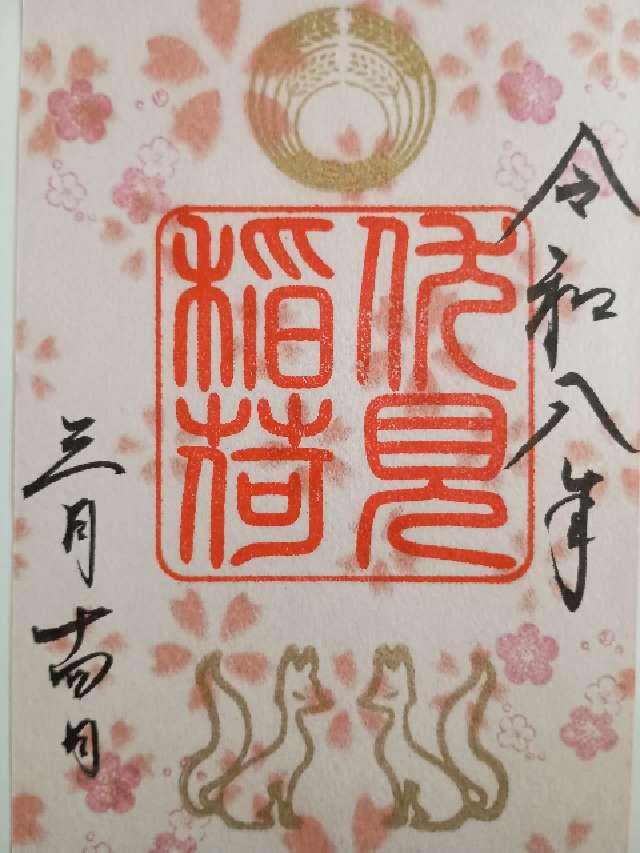 令和八年
伏見
稲荷
三月十四日